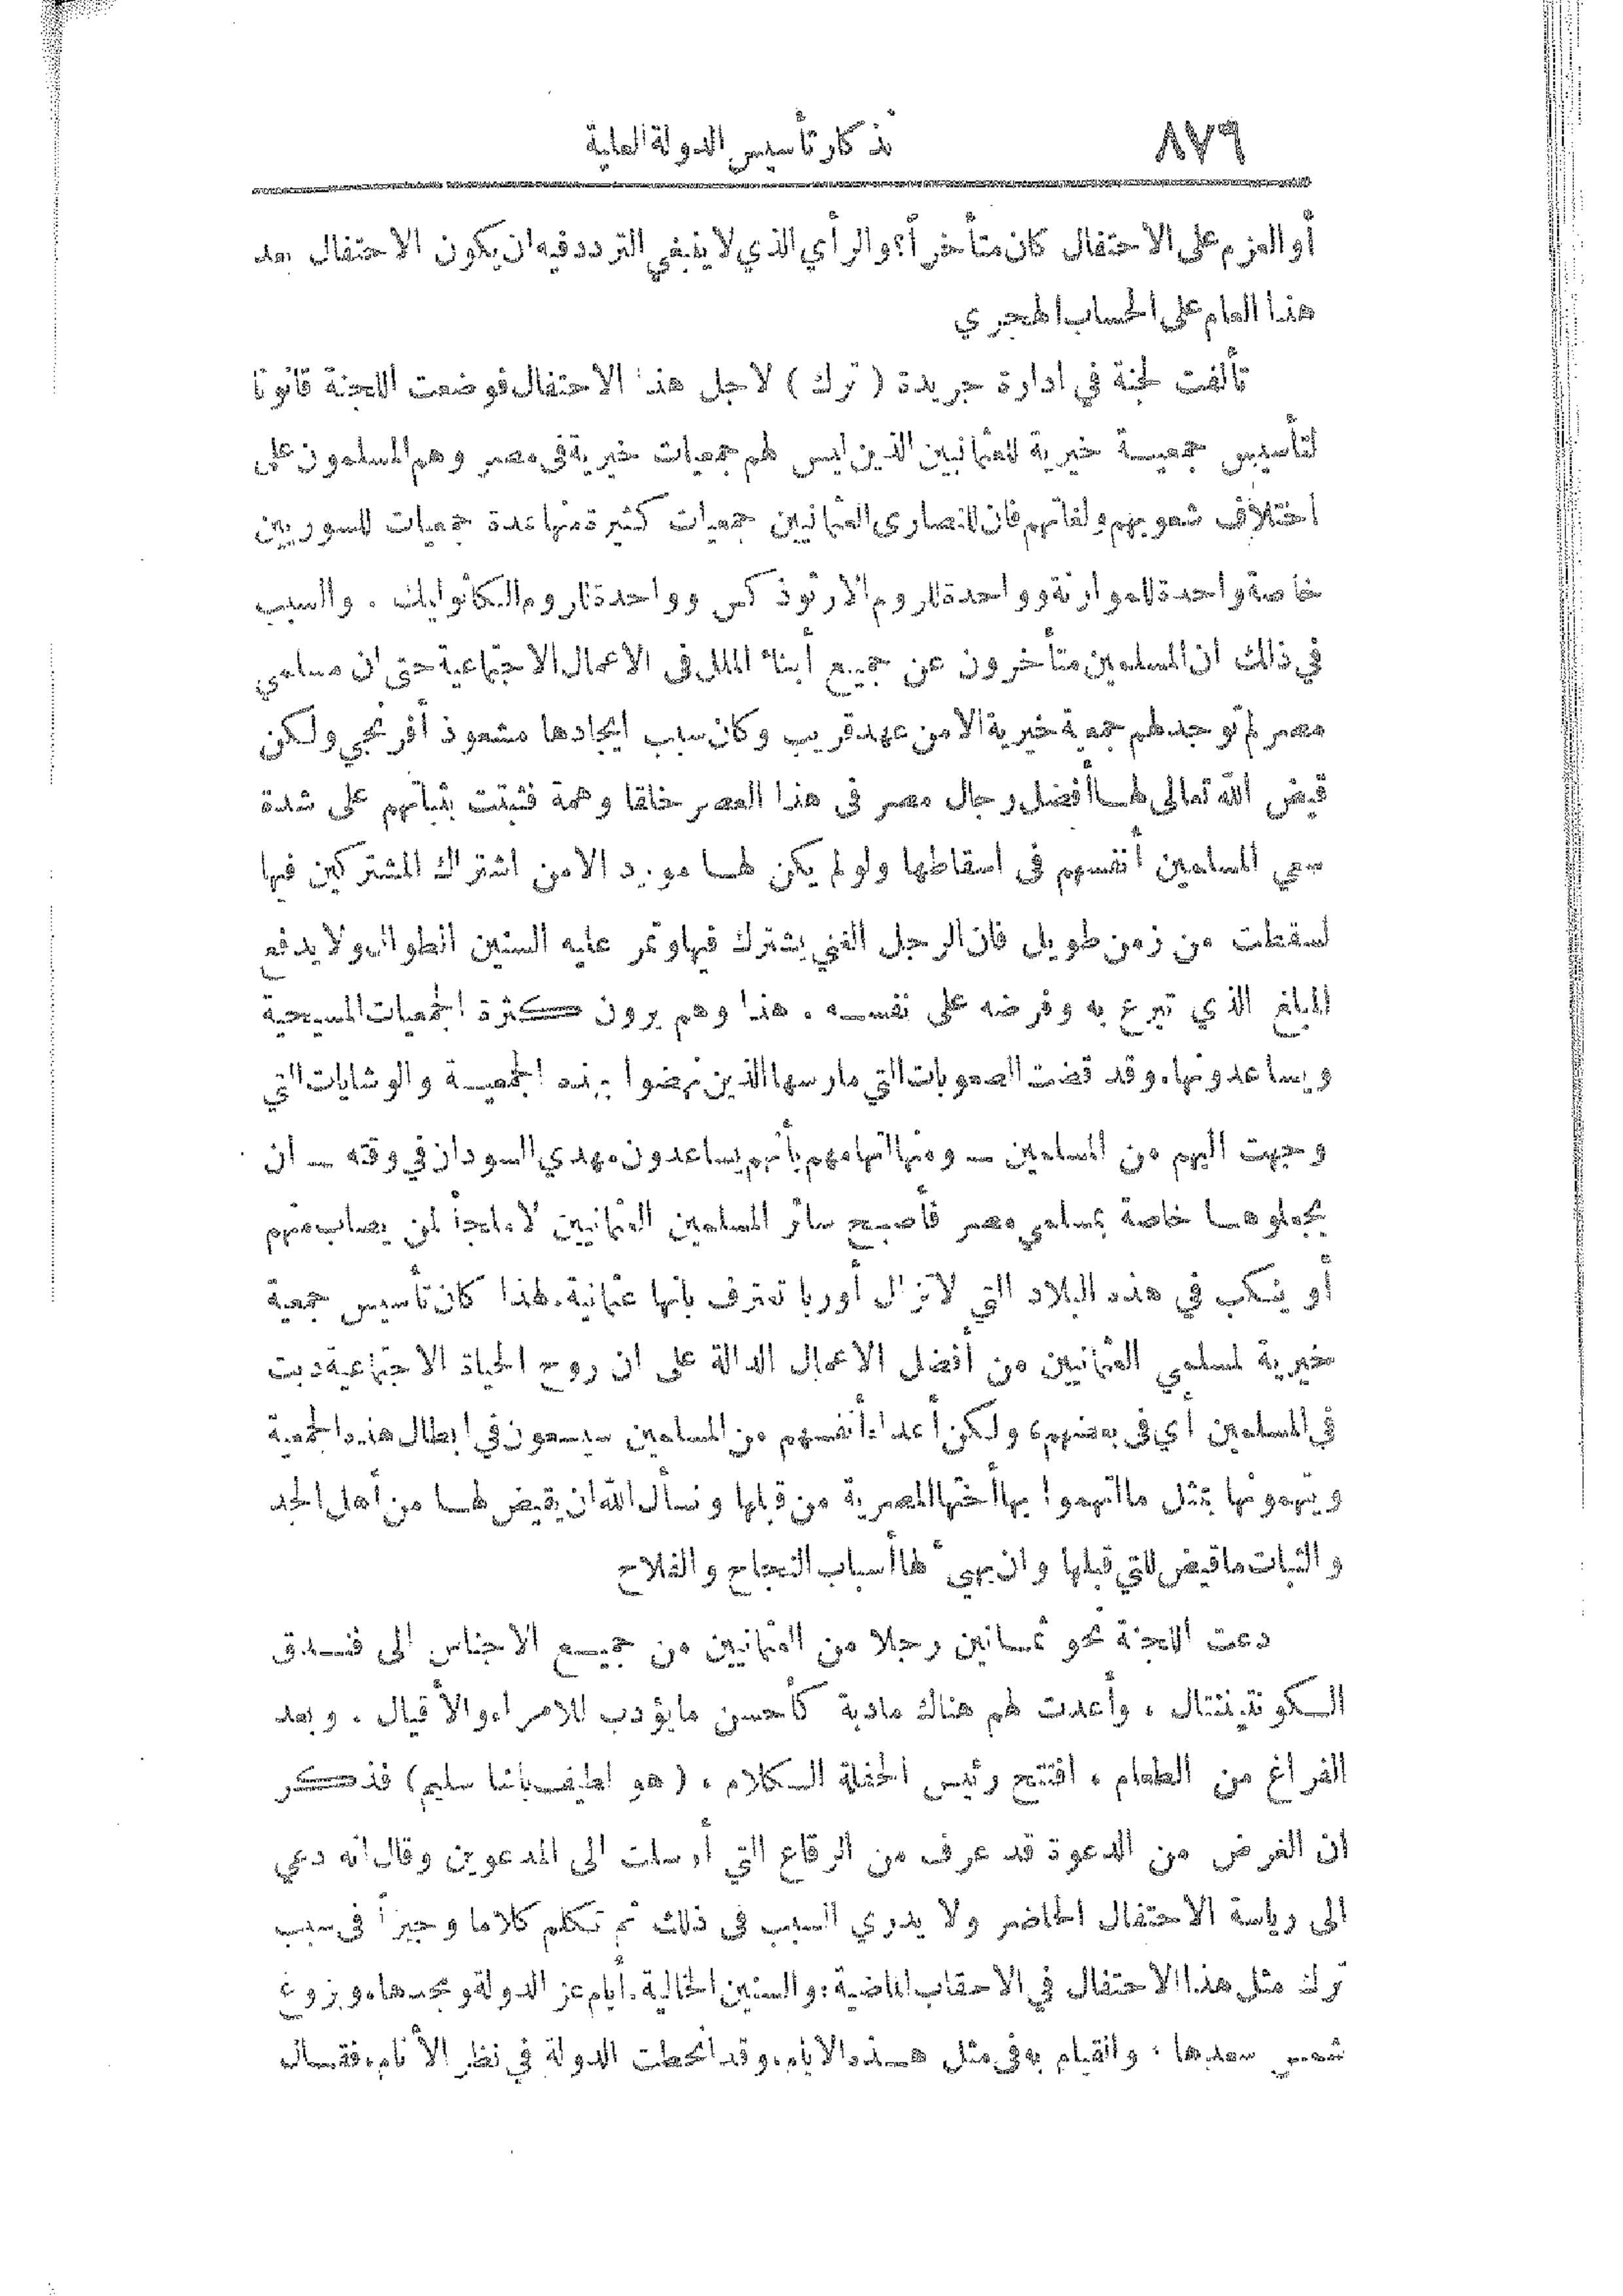 ٨٧٩
تذكار تأسيس الدولة العلية
أو العزم على الاحتفال كان متأخراً؟ والرأي الذي لا ينبغي التردد فيه ان يكون الاحتفال بعد
هذا العام على الحساب الهجري
تألفت لجنة في ادارة جريدة ( ترك ) لاجل هذا الاحتفال فوضعت اللجنة قانونا
لتأسيس جمعيـة خيرية للعثمانيين الذين ليس لهم جمعيات خيرية في مصر وهم المسلمون على
اختلاف شعوبهم ولغاتهم فان للنصارى العثمانيين جمعيات كثيرة منها عدة جمعيات للسوريين
خاصة واحدة للموارنة وواحدة للروم الارثوذكس وواحدة للروم الكاثوليك . والسبب
في ذلك ان المسلمين متأخرون عن جميع أبناء الملل في الاعمال الاجتماعية حتى ان مسلمي
مصر لم توجد لهم جمعية خيرية الا من عهد قريب وكان سبب ايجادها مشعوذ أفرنجي ولكن
قيض الله تعالى لهـا أفضل رجال مصر في هذا العصر خلقا وهمة فثبتت بثباتهم على شدة
سعي المسلمين أنفسهم في اسقاطها ولو لم يكن لهـا مورد الا من اشتراك المشتركين فيها
لسقطت من زمن طويل فان الرجل الغني يشترك فيها وتمر عليه السنين الطوال ولا يدفع
المبلغ الذي تبرع به وفرضه على نفسـه . هذا وهم يرون كـثرة الجمعيات المسيحية
ويساعدونها. وقد قضت الصعوبات التي مارسها الذين نهضوا بهذه الجمعيـة والوشايات التي
وجهت اليهم من المسلمين ــ ومنها اتهامهم بأنهم يساعدون مهدي السودان في وقته ــ ان
يجعلوهـا خاصة بمسلمي مصر فأصبح سائر المسلمين العثمانيين لا ملجأ لمن يصاب منهم
أو ينكب في هذه البلاد التي لا تزال أوربا تعترف بانها عثمانية. لهذا كان تأسيس جمعية
خيرية لمسلمي العثمانيين من أفضل الاعمال الدالة على ان روح الحياة الاجتماعية دبت
في المسلمين أي في بعضهم، ولكن أعداء أنفسهم من المسلمين سيسعون في ابطال هذه الجمعية
ويتهمونها بمثل ما اتهموا بها أختها المصرية من قبلها ونسأل الله ان يقيض لهـا من أهل الجد
والثبات ما قيض للتي قبلها وان يهيئ لها أسباب النجاح والفلاح
دعت اللجنة نحو ثمـانين رجلا من العثمانيين من جميـع الاجناس الى فنـدق
الـكونتيننتال ، وأعدت لهم هناك مادبة كأحسن ما يؤدب للامراء والأقيال . وبعد
الفراغ من الطعام ، افتتح رئيس الحفلة الـكلام ، (هو لطيف باشا سليم) فذكـر
ان الغرض من الدعوة قد عرف من الرقاع التي أرسلت الى المدعوين وقال انه دعي
الى رياسة الاحتفال الحاضر ولا يدري السبب في ذلك ثم تكلم كلاما وجيزاً في سبب
ترك مثل هذا الاحتفال في الاحقاب الماضية؛ والسنين الخالية. أيام عز الدولة ومجدها، وبزوغ
شمس سعدها ، والقيام به في مثل هـذه الايام، وقد انحطت الدولة في نظر الأنام، فقـال